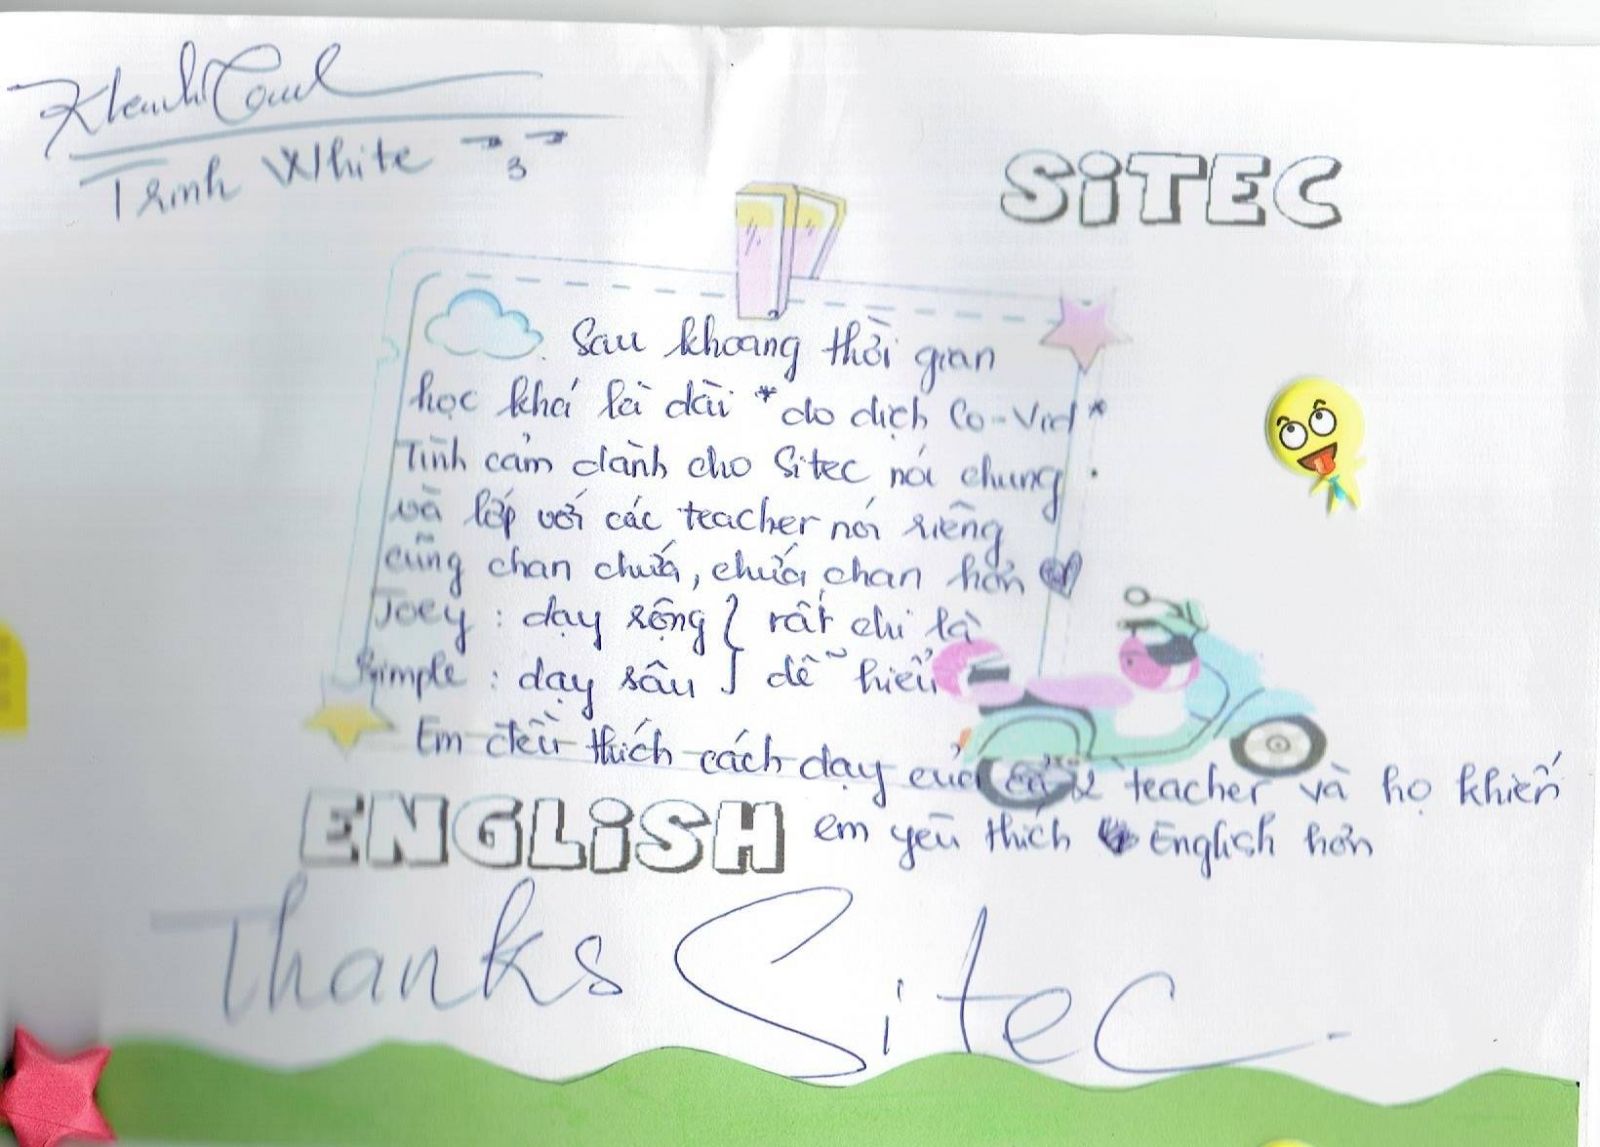 Trinh White
SiTEC
Sau khoảng thời gian
học khá là dài *do dịch Co-Vid*
Tình cảm dành cho Sitec nói chung
và lớp với các teacher nói riêng
cũng chan chứa, chứa chan hơn
Joey : dạy rộng } rất chi là
Simple : dạy sâu } dễ hiểu
Em đều thích cách dạy của cả 2 teacher và họ khiến
em yêu thích English hơn
ENGLiSH
Thanks Sitec.